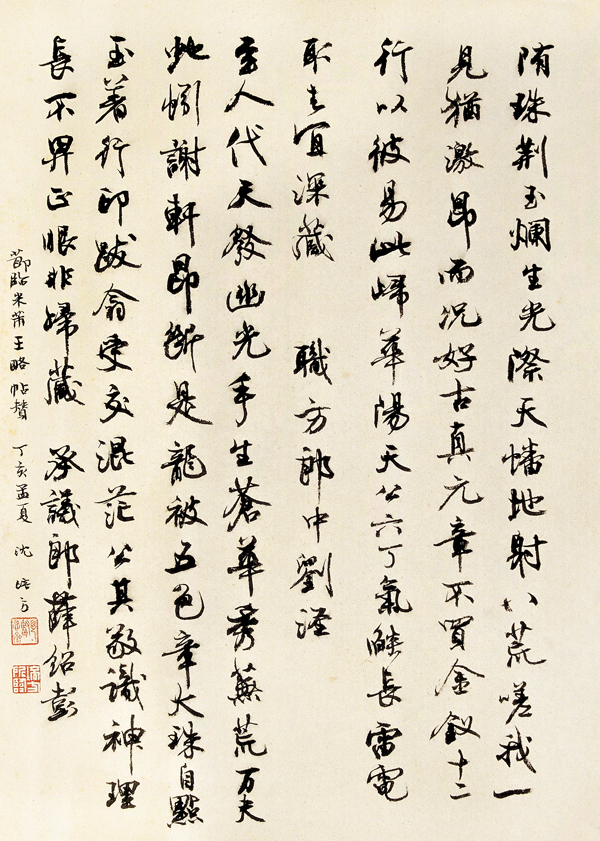 隋珠荆玉爛生光際天蟠地射八荒嗟我一
見猶激昂而況好古真元章不買金釵十二
行以彼易此歸華陽天公六丁氣燄長雷電
取去宜深藏 職方郎中劉涇
至人代天發幽光手生蒼華秀蕪荒万夫
地謝軒昂斷是龍被五色章大珠自點
玉著行印跋受交混茫公其敬識神理
長不畀正眼非歸藏 承議郎薛紹彭
節臨米芾王略帖贊 丁亥孟夏 沈培方